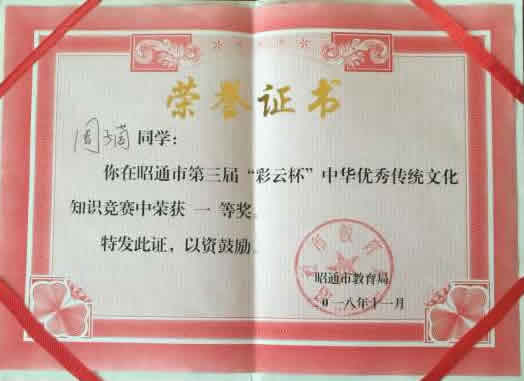 荣誉证书
同学：
你在昭通市第三届“彩云杯”中华优秀传统文化
知识竞赛中荣获 一 等奖。
特发此证，以资鼓励。
昭通市教育局
〇一八年十一月